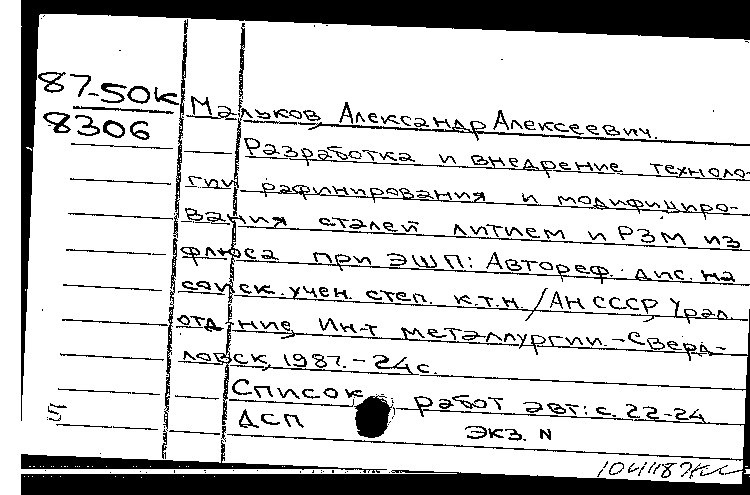 87-50к
8306
Мальков, Александр Алексеевич.
Разработка и внедрение техноло-
гии рафинирования и модифициро-
вания сталей литием и РЗМ из
флюса при ЭШП: Автореф. дис. на
соиск. учен. степ. к.т.н. / АН СССР, Урал.
отд-ние, Ин-т металлургии. - Сверд-
ловск, 1987. - 24 с.
Список работ авт: с. 22-24
5 ДСП экз. N